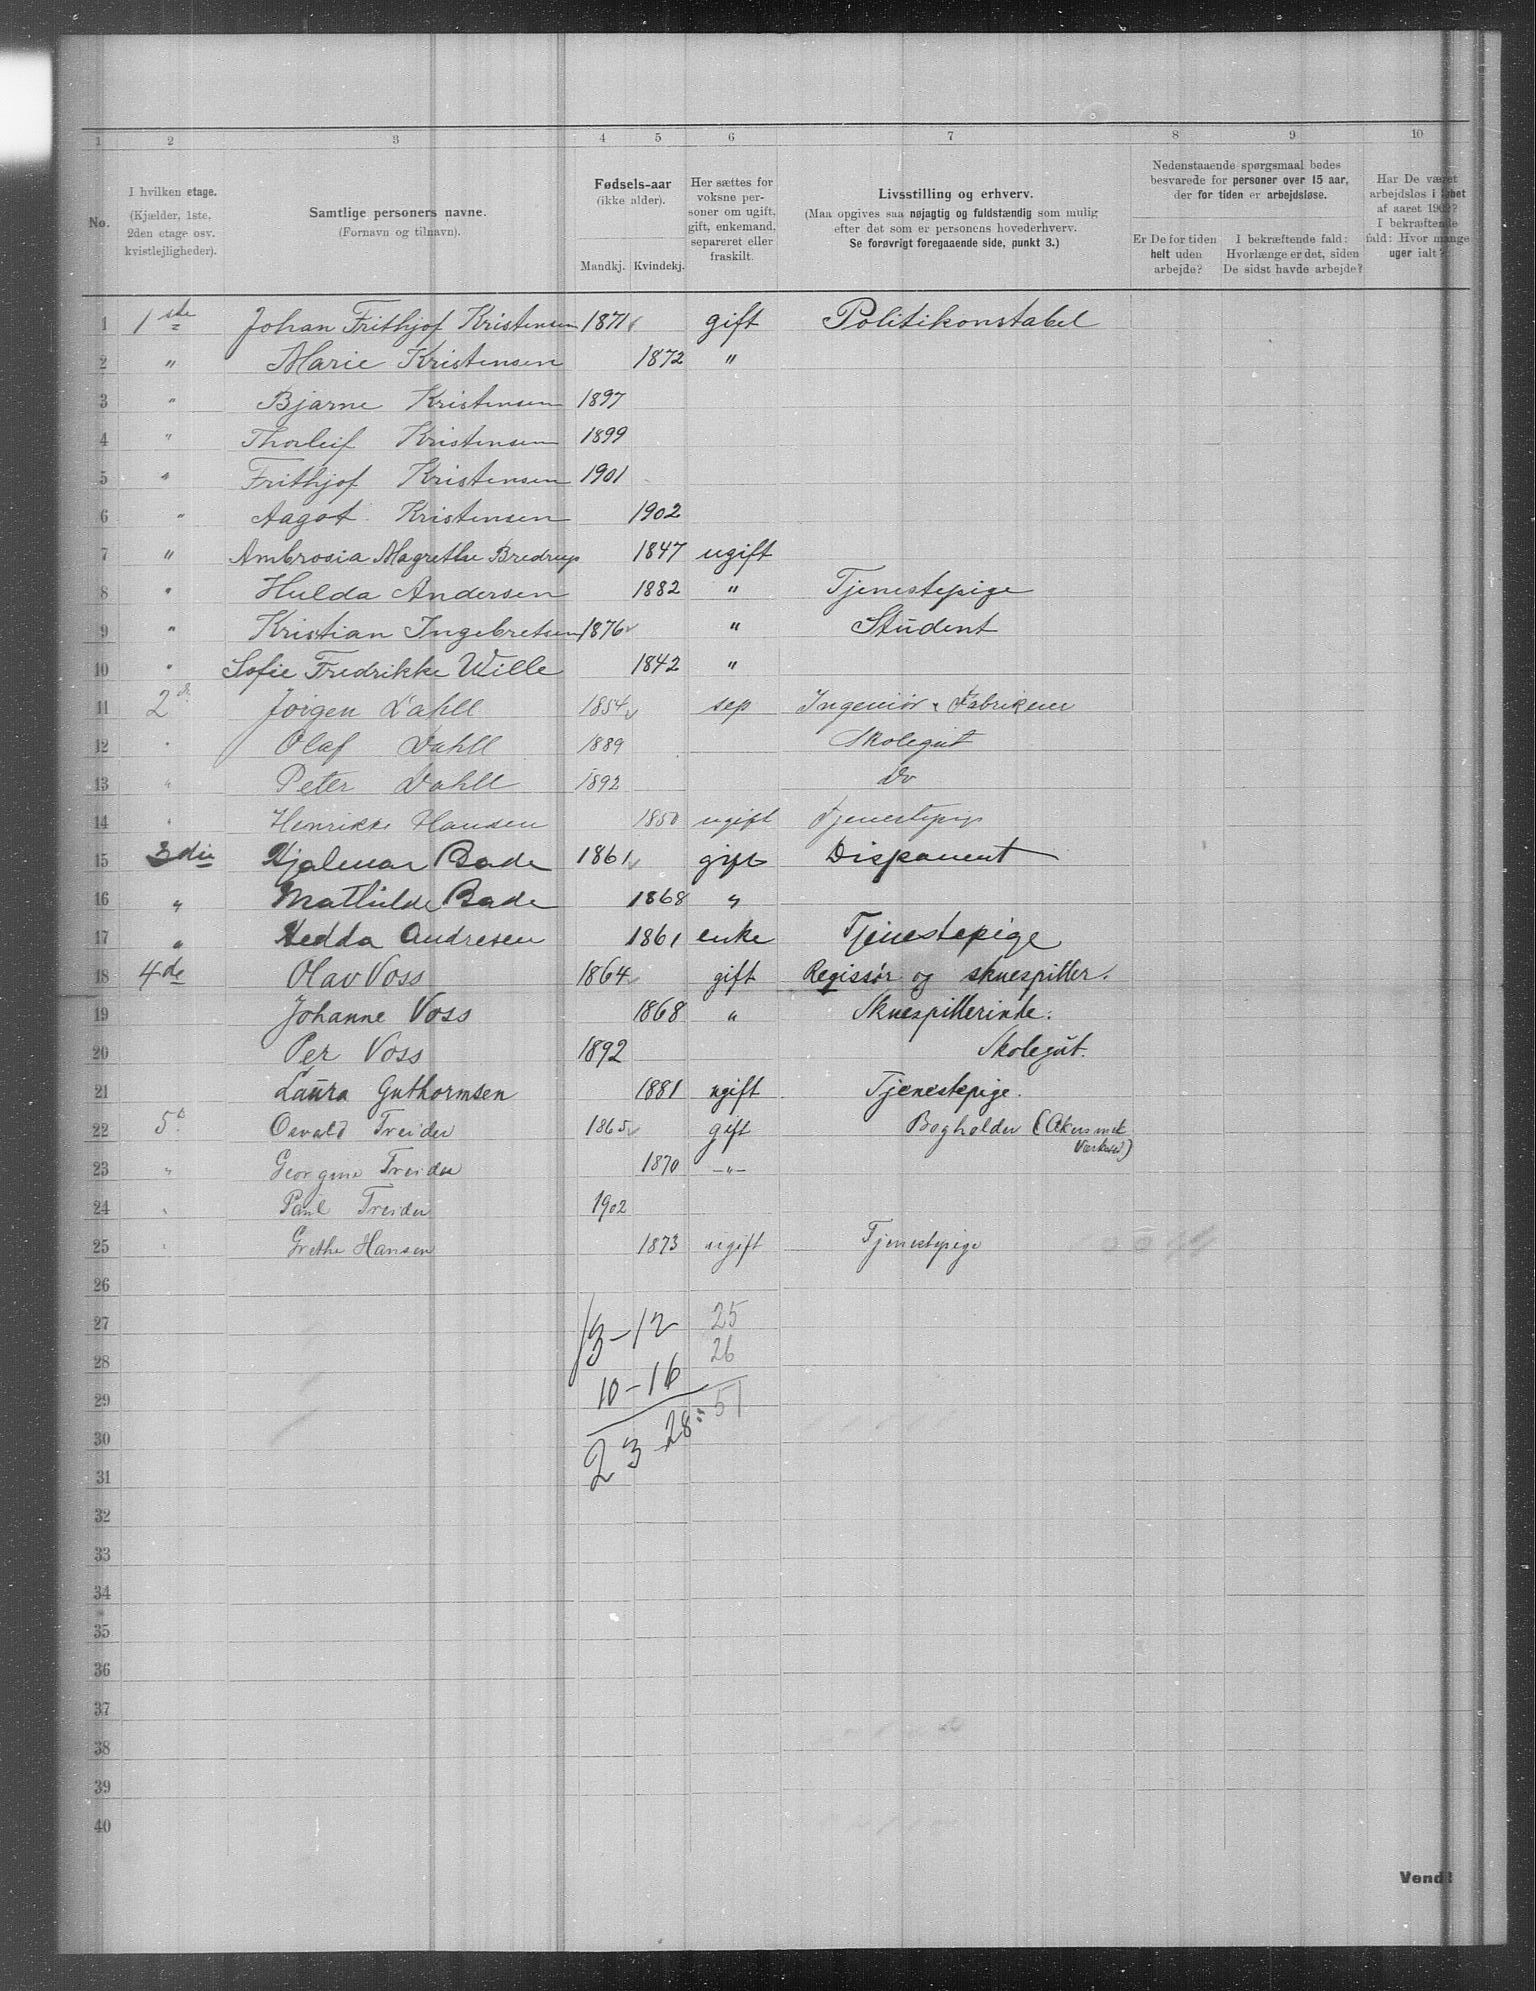 1 2 3 4 5 6 7 8 9 10
No.
I hvilken etage.
(Kjælder, 1ste,
2den etage osv.
kvistlejligheder).
Samtlige personers navne.
(Fornavn og tilnavn).
Fødsels-aar
(ikke alder).
Mandkj. Kvindekj.
Her sættes for
voksne per-
soner om ugift,
gift, enkemand,
separeret eller
fraskilt.
Livsstilling og erhverv.
(Maa opgives saa nøjagtig og fuldstændig som mulig
efter det som er personens hovederhverv.
Se forøvrigt foregaaende side, punkt 3.)
Nedenstaaende spørgsmaal bedes
besvarede for personer over 15 aar,
der for tiden er arbejdsløse.
Er De for tiden
helt uden
arbejde?
I bekræftende fald:
Hvorlænge er det, siden
De sidst havde arbejde?
Har De været
arbejdsløs i løbet
af aaret 1902?
I bekræftende
fald: Hvor mange
uger ialt?
1 1ste Johan Frithjof Kristensen 1871 gift Politikonstabel
2 " Marie Kristensen 1872 "
3 " Bjarne Kristensen 1897
4 " Thorleif Kristensen 1899
5 " Frithjof Kristensen 1901
6 " Aagot Kristensen 1902
7 " Ambrosia Magrethe Bredrup 1847 ugift
8 " Hulda Andersen 1882 " Tjenestepige
9 " Kristian Ingebretsen 1876 " Student
10 " Sofie Fredrikke Wille 1842 "
11 2d. Jørgen Dahll 1854 sep Ingeniør & Fabrikeier
12 " Olaf Dahll 1889 Skolegut
13 " Peter Dahll 1892 Do
14 " Henrikke Hansen 1850 ugift Tjenestepige
15 3die Hjalmar Bade 1861 gift Disponent
16 " Mathilde Bade 1868 "
17 " Hedda Andresen 1861 enke Tjenestepige
18 4de Olav Voss 1864 gift Regissør og skuespiller.
19 Johanne Voss 1868 " Skuespillerinde.
20 Per Voss 1892 Skolegut.
21 Laura Guthormsen 1881 ugift Tjenestepige.
22 5d. Osvald Treider 1865 gift Bogholder (Akers mek
Værksted)
23 " Georgine Treider 1870 -"-
24 " Paul Treider 1902
25 " Grethe Hansen 1873 ugift Tjenestepige
26
27 13-12 25
28 26
29 10-16
30 23 28 = 51
31
32
33
34
35
36
37
38
39
40
Vend!